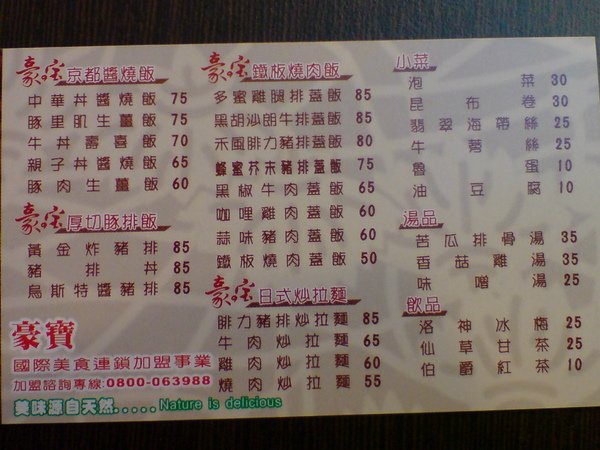 豪宝京都醬燒飯
中華丼醬燒飯 75
豚里肌生薑飯 75
牛丼壽喜飯 70
親子丼醬燒飯 65
豚肉生薑飯 60
豪宝厚切豚排飯
黃金炸豬排 85
豬排丼 85
烏斯特醬豬排 85
豪寶
國際美食連鎖加盟事業
加盟諮詢專線:0800-063988
美味源自天然.....Nature is delicious
豪宝鐵板燒肉飯
多蜜雞腿排蓋飯 85
黑胡沙朗牛排蓋飯 85
禾風腓力豬排蓋飯 80
蜂蜜芥末豬排蓋飯 75
黑椒牛肉蓋飯 65
咖哩雞肉蓋飯 60
蒜味豬肉蓋飯 60
鐵板燒肉蓋飯 50
豪宝日式炒拉麵
腓力豬排炒拉麵 85
牛肉炒拉麵 65
雞肉炒拉麵 60
燒肉炒拉麵 55
小菜
泡菜 30
昆布卷 30
翡翠海帶絲 25
牛蒡絲 25
魯蛋 10
油豆腐 10
湯品
苦瓜排骨湯 35
香菇雞湯 35
味噌湯 25
飲品
洛神冰梅 25
仙草甘茶 25
伯爵紅茶 10